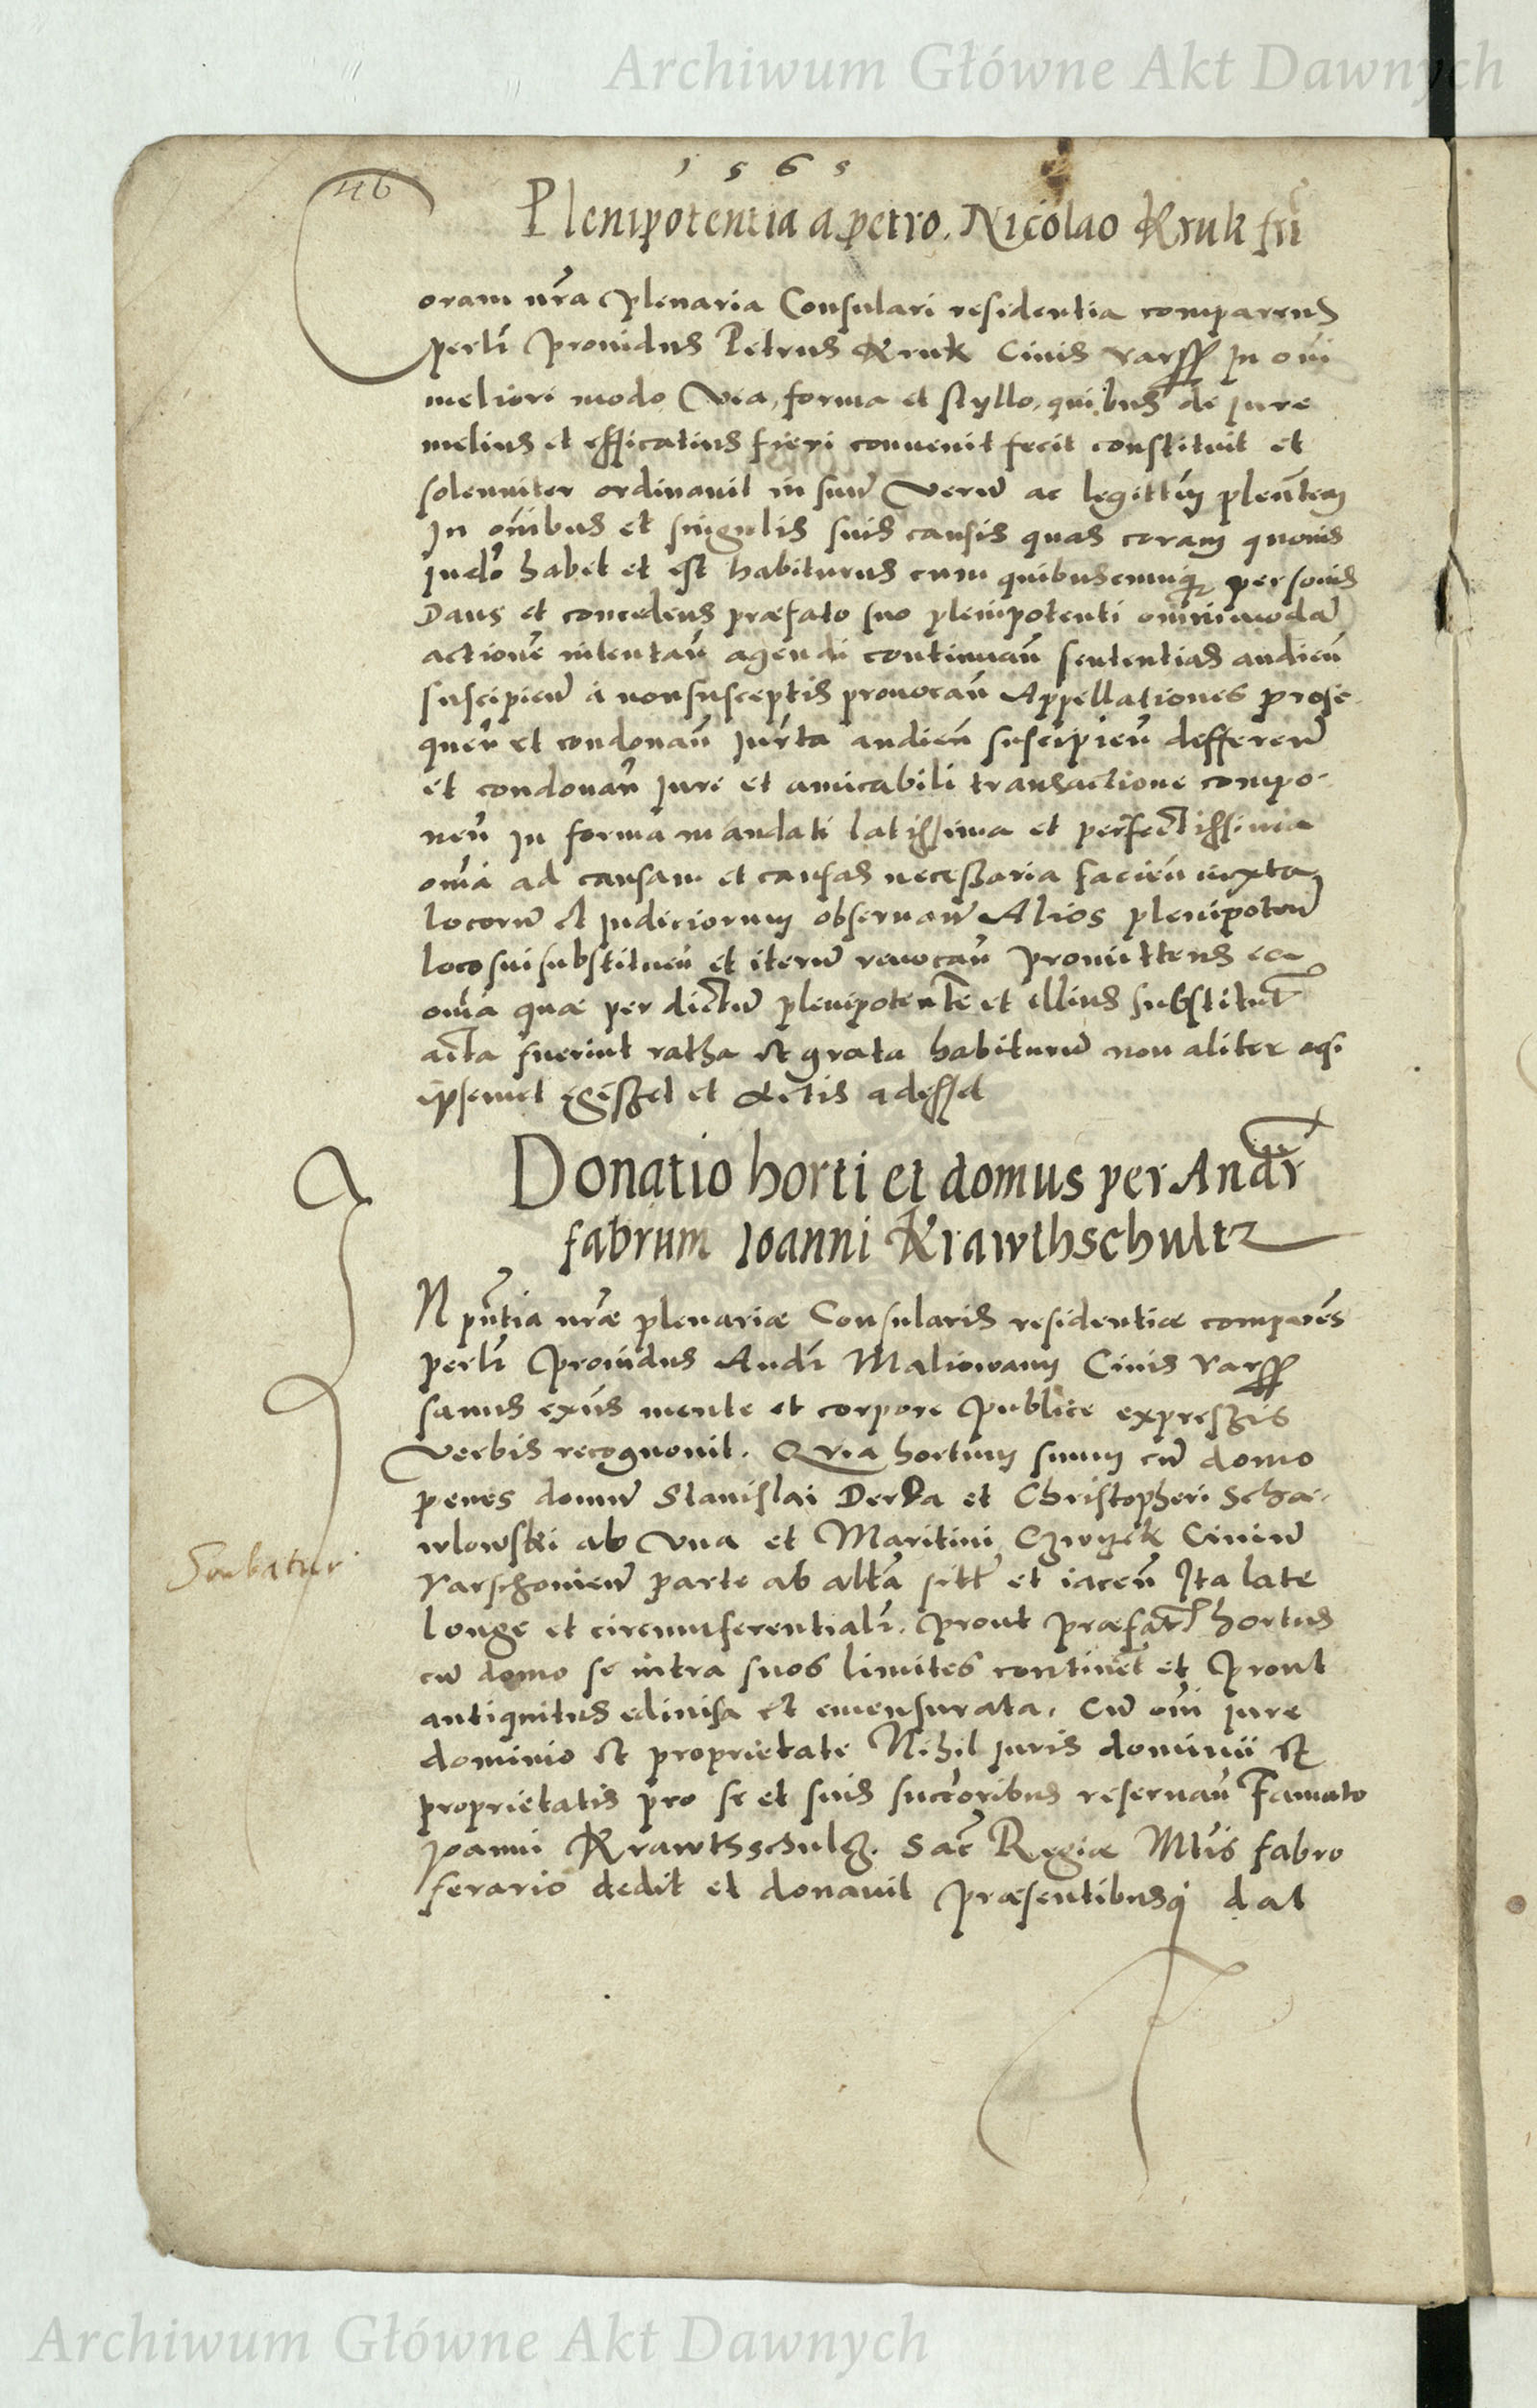 Archiwum Główne Akt Dawnych
1565
46
Plenipotentia a petro. Nicolao Kruk fri
Coram nra plenaria Consulari residentia comparens
perlr prouidus Petrus Kruk Ciuis Varss In oni
meliori modo Via, forma et styllo, quibus de jure
melius et efficatius fieri conuenit fecit constituit et
solenniter ordinauit in suu Veru ac legittim plentem
In onibus et singulis suis causis quas coram quouis
judo habet et est habiturus cum quibuscumq personis
Dans et concedens præfato suo plenipotenti omnimoda
actione intentan agendi continuan sententias audien
suscipien à non susceptis prouocan Appellationes prose-
quen et condonan jurta audien suscipien defferen
et condonan jure et amicabili transactione compo-
nen in forma mandati latissima et perfectissima
onia ad causam et causas necessaria facien iuxta
locoru et judiciorum obseruan Alios plenipoten
loco sui substituen et iteru reuocan promittens se
onia quæ per dictu plenipotente et illius substitut
acta fuerint ratha et grata habituru non aliter acsi
ipsemet egisset et actis adesset
Donatio horti et domus per Andr
fabrum Ioanni Krawthschultz
IN pntia nræ plenariæ Consularis residentiæ compares
perlr prouidus Andr Maliowany Ciuis Varss
sanus exns mente et corpore publice expressis
Verbis recognouit. Quia hortum suum cu domo
penes domu Stanislai Derda et Christopheri Schae-
wlowski ab Vna et Maritini Czwyek Ciuiu
Varschouien parte ab alta sitt et iacen Ita late
longe et circumferentialr. prout præfat hortus
cu domo se intra suos limites continet et prout
antiquitus ediuisa et emensurata. Cu oni iure
dominio et proprietate Nihil juris dominii et
proprietatis pro se et suis succoribus reseruan Famato
Joanni Krawthschulz. Sac Regiæ Mtis fabro
ferario dedit et donauit præsentibusq dat
Archiwum Główne Akt Dawnych